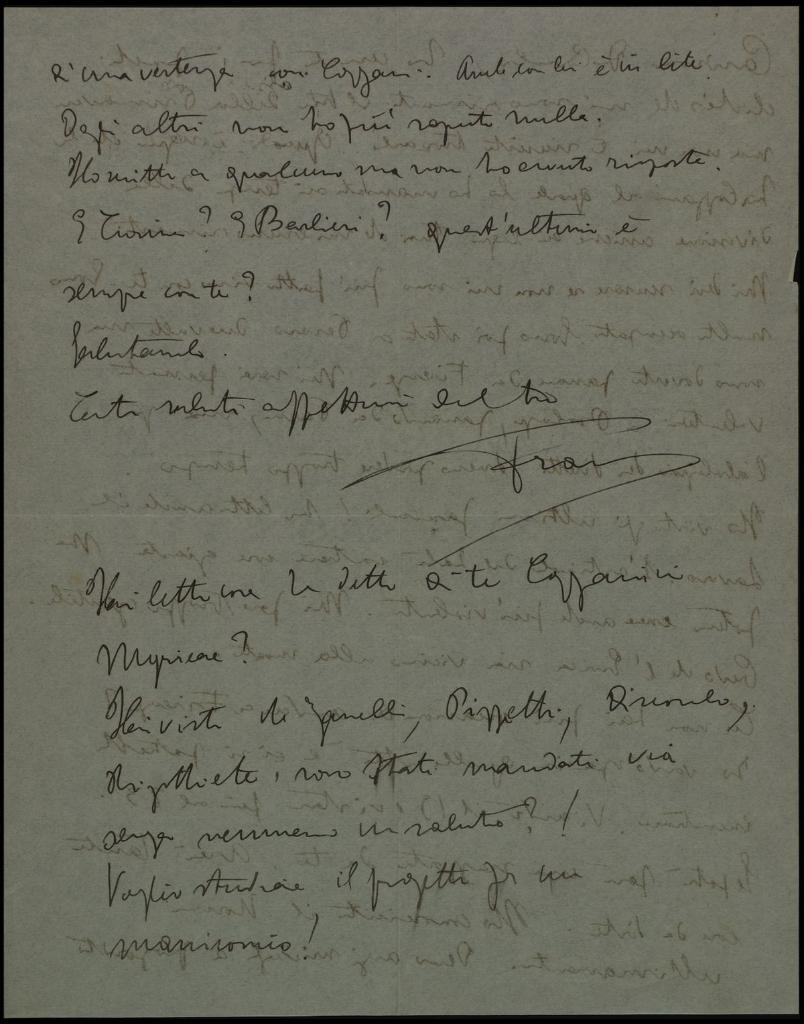 d'una vertenza con Cozzani. Anche con lui è in lite.
Degli altri non ho più saputo nulla.
Ho scritto a qualcuno ma non ho avuto risposta.
E ? E Barbieri? quest'ultimo è
sempre con te?
Salutamelo.
Tanti saluti affettuosi dal tuo
Hai letto cosa ha detto di te Cozzani in
Myricae?
Hai visto che Zanelli, Pizzetti, Discovolo,
Rigotti etc, sono stati mandati via
senza nemmeno un saluto?!
Voglio studiare il progetto per un
manicomio!